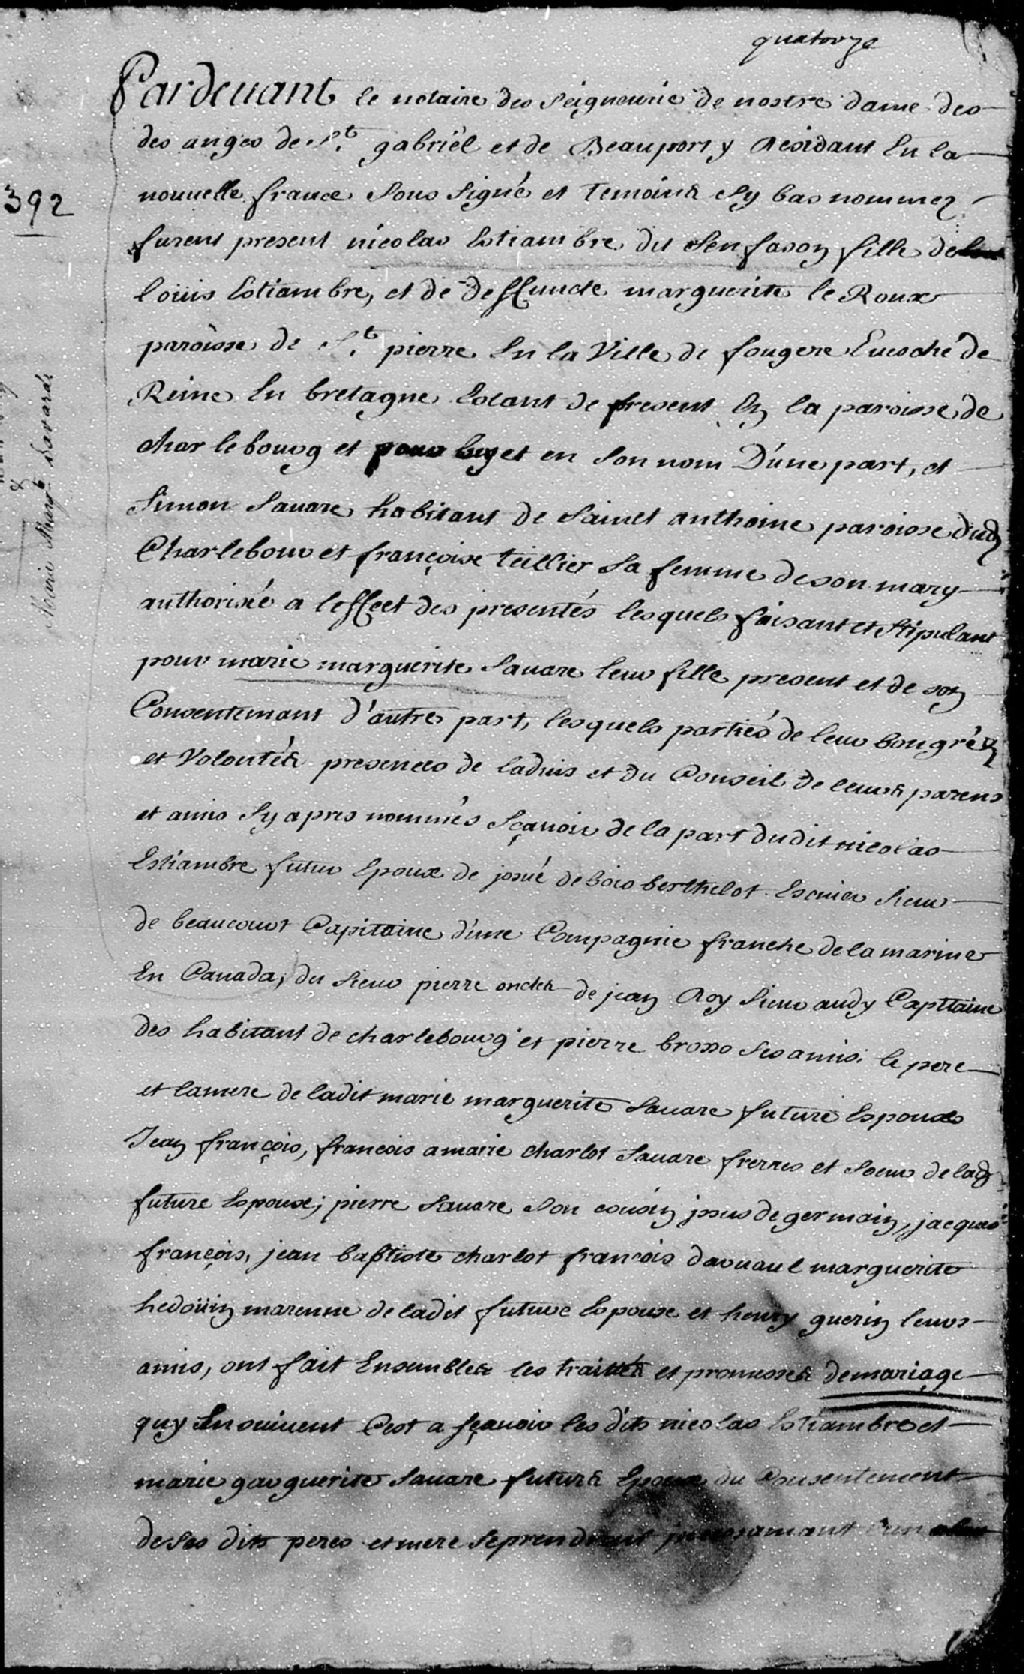 quatorze
Pardevant le notaire des seigneurie de nostre dame des
des anges de St. gabriël et de Beauport y Residant En la
392
nouvelle france sous signé et temoins Cy bas nommez
furent present nicolas Estiambre dit sen fason fills de
Loüis Estiambre, et de deffuncte marguerite le Roux
paroisse de St. pierre En la Ville de fougere Evesché de
Reine En bretagne Estant de present En la paroisse de
charlebourg et pour luy et en son nom D'une part, et
Simon Savare habitant de Sainct anthoine paroisse dud
Charlebour et françoise teillier sa femme de son mary
authorisée a leffect des presentés lesquels faisant et stipulant
pour marie marguerite Savare leur fille present et de son
Consentemant d'autre part, lesquels partiés de leur bongrés
et Volontés presences de ladvis et du Conseil de leurs parens
et amis Cy apres nommés sçavoir de la part dudit nicolas
Estiambre futur Epoux de josué de bois berthelot Escuier sieur
de beaucourt Capitaine d'une Compagnie franche de la marine
En Canada, du sieur pierre de jean Roy sieur audy Capitaine
des habitant de charlebourg et pierre brosso ses amis, le pere
et lamere de ladit marie marguerite Savare future Espouse
Jean françois, francois a marie charlot Savare freres et soeur de lad
future Espouse; pierre Savare son cousin jssus de germain, jacques
françois, jean baptiste charlot francois davaul marguerite
hedoüin marenne de ladit future Espouse et henry guerin leurs
amis, ont fait Ensembles les traittés et promesses demariage
quy Ensuivent Cest a sçavoir les dits nicolas Estiambre et
marie garguerite Savare futurs Epoux du Consentement
de ses dits peres et mere se prendront
Marie Margte Savarde